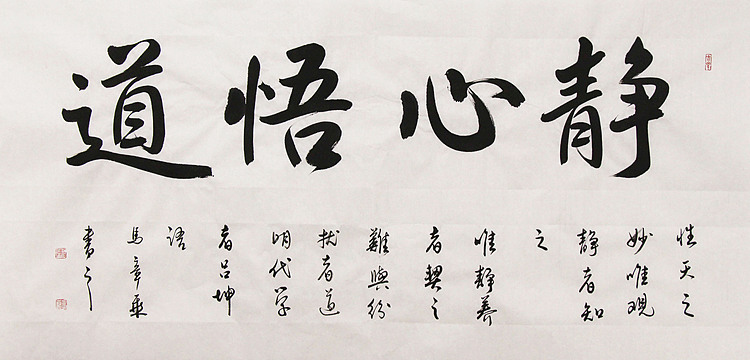 静心悟道
性天之
妙唯观
静者知
之
唯静养
者契之
難與纷
扰者道
明代学
者吕坤
语
馬章乘
書之